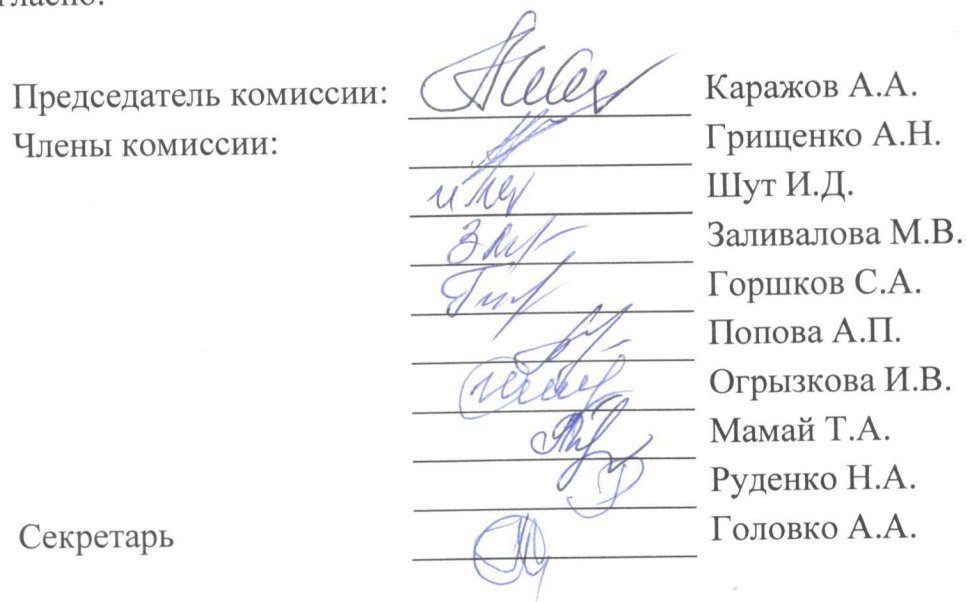 Председатель комиссии: Каражов А.А.
Члены комиссии: Грищенко А.Н.
Шут И.Д.
Заливалова М.В.
Горшков С.А.
Попова А.П.
Огрызкова И.В.
Мамай Т.А.
Руденко Н.А.
Секретарь Головко А.А.